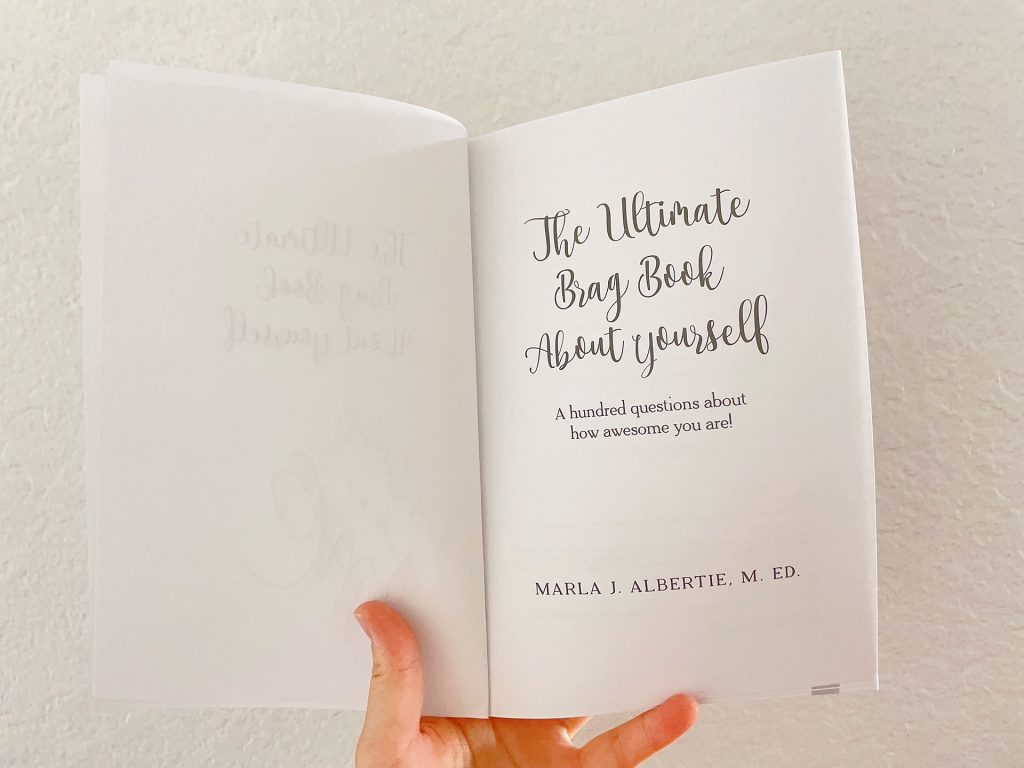 The Ultimate
Brag Book
About yourself
A hundred questions about
how awesome you are!
MARLA J. ALBERTIE, M. ED.